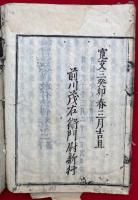 寛文三癸卯春三月吉旦
前川茂右衛門尉新行